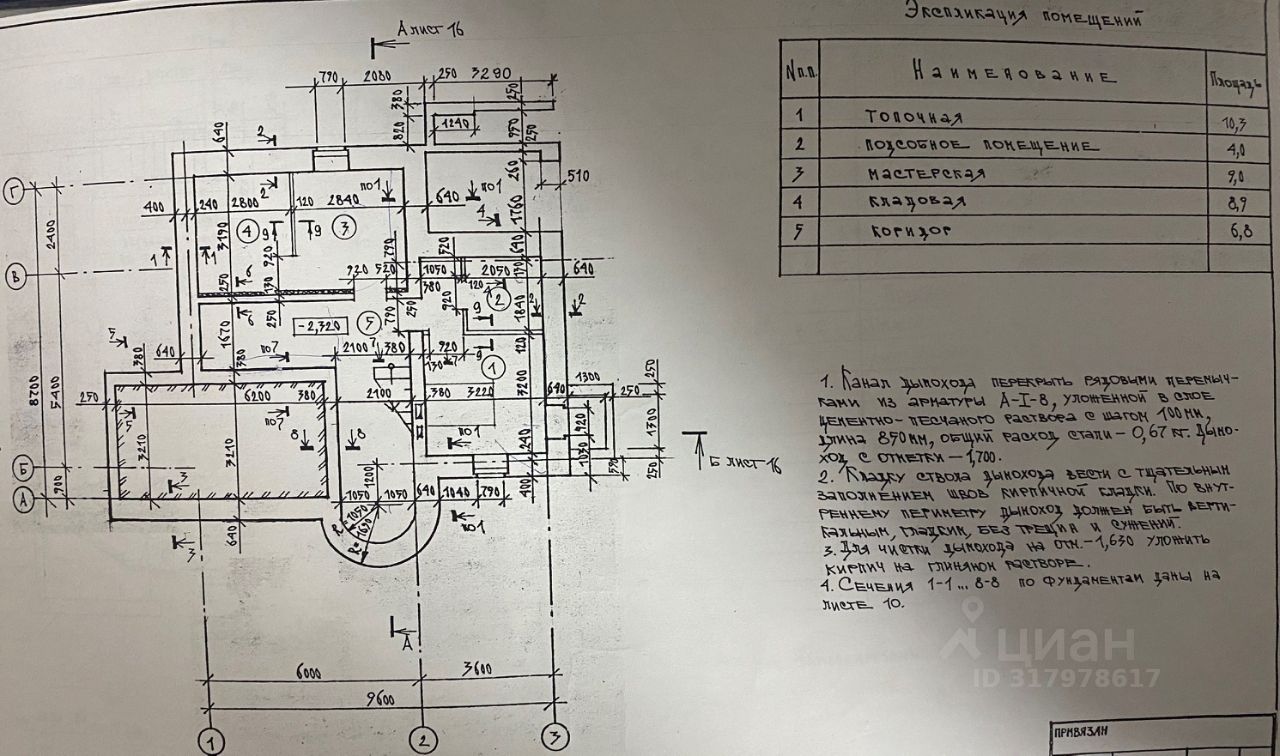 Экспликация помещений
№п.п.
Наименование
Площадь
1 Топочная 10,3
2 Подсобное помещение 4,0
3 Мастерская 9,0
4 Кладовая 8,9
5 Коридор 6,8
А лист 16
790 2080 250 3290
380 250
640 2 820 1240 950 250
510
Г
400 240 2800 120 2840 640 260
2 по1 по1
4 1760
4 3 9 9
1 1 3190 920 790 520 640
2400
В
1050 2050 640
920 520 380 120
250 130 920 2 1840 2
250 -2,320 5 250 790 9
1670 120
640 380 по7 2100 7 380 920 9 1
380 130 7 3200
5
250 6200 380 2100 380 3220 640 1300 250
8700 5400
5 по7 8 8 920 1300
3210 3210 по1 240 1030
Б лист 16
Б
1200 250
А
900 3 1050 1050 640 1040 790 400
640 R=1050 по1
R=1690
3
А
6000 3600
9600
1 2 3
1. Канал дымохода перекрыть рядовыми перемыч-
ками из арматуры А-I-8, уложенной в слое
цементно-песчаного раствора с шагом 100мм,
длина 850мм, общий расход стали – 0,67 кг. Дымо-
ход с отметки –1,700.
2. Кладку ствола дымохода вести с тщательным
заполнением швов кирпичной кладки. По внут-
реннему периметру дымоход должен быть верти-
кальным, гладким, без трещин и сужений.
3. Для чистки дымохода на отм.–1,630 уложить
кирпич на глиняном растворе.
4. Сечения 1-1... 8-8 по фундаментам даны на
листе 10.
циан
ID 317978617
Привязан